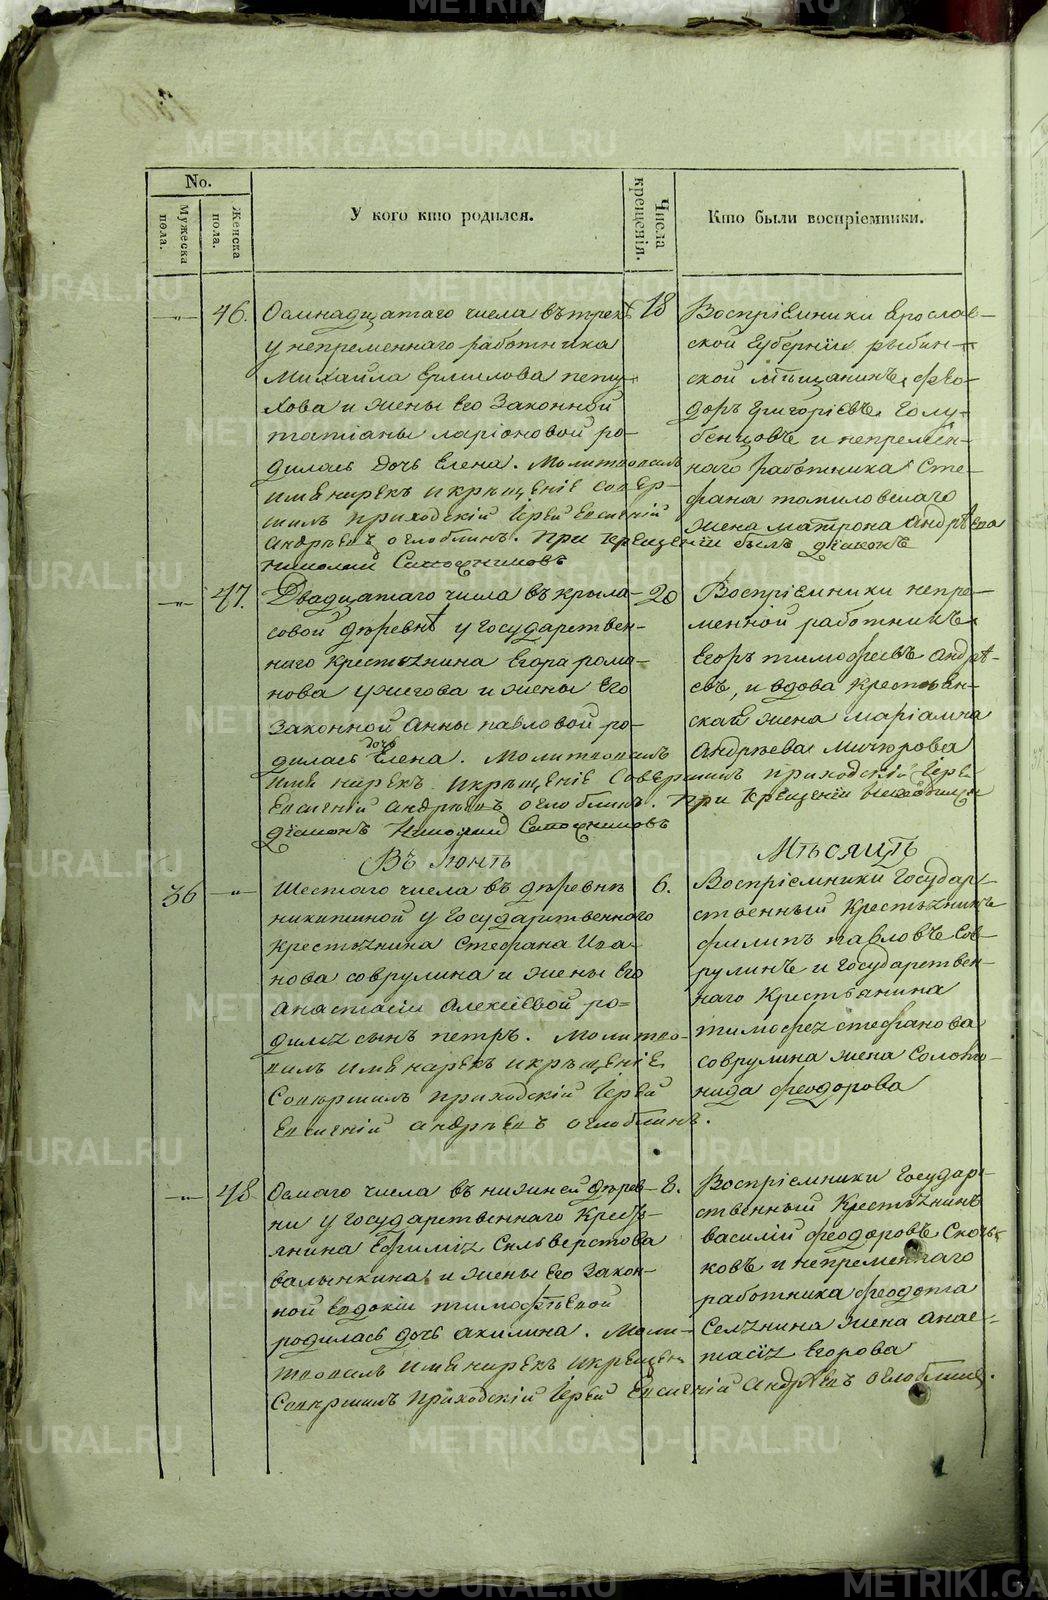 No.
Мужеска пола.
Женска пола.
У кого кто родился.
Числа крещенія.
Кто были воспріемники.
46. Осмнадцатаго числа въ
у непременнаго работника
Михаила Ермилова
хова и жены Его Законной
татіаны ларіоновой ро-
дилась дочь Елена. Молитвовалъ
имя нарекъ и крещеніе совер-
шилъ приходскій Іерей Евгеній
Андрѣевъ оглоблинъ. При крещеніи былъ діаконъ
николай Сапожниковъ
18
Воспріемники Ярослав-
ской Губерніи рыбин-
ской мѣщанинъ, Фео-
доръ Григоріевъ Голу-
бенцовъ и непремен-
наго работника Сте-
фана томиловскаго
жена матрона Андрѣева
47. Двадцатаго числа въ крыла-
совой деревнѣ у государствен-
наго крестьянина Егора рома-
нова ужегова и жены Его
Законной Анны павловой ро-
дилась дочь Елена. Молитвовалъ
имя нарекъ и крещеніе Совершилъ приходскій Іерей
Евгеній андрѣевъ оглоблинъ. При Крещеніи
діаконъ Николай Сапожниковъ
20
Воспріемники непре-
менной работникъ
Егоръ тимофѣевъ Андрѣ-
евъ, и вдова крестьян-
ская жена маріамна
Андрѣева Мичюрова
Въ Іюнѣ Мѣсяцѣ
36 Шестаго числа въ деревнѣ
никитиной у Государственнаго
крестьянина Стефана Ива-
нова соврулина и жены Его
Анастасіи Алексіевой ро-
дился сынъ петръ. Молитво-
валъ имя нарекъ и крещеніе
Совершилъ приходскій Іерей
Евгеній андрѣевъ оглоблинъ.
6.
Воспріемники Государ-
ственный Крестьянинъ
филипъ павловъ Сов-
рулинъ и государствен-
наго Крестьянина
тимофея стефанова
соврулина жена Соломо-
нида феодорова
48 Осмаго числа въ нижней дерев-
ни у государственнаго Кресть-
янина Ефимія Сильверстова
валынкина и жены Его Закон-
ной евдокіи тимофѣевной
родилась дочь акилина. Моли-
твовалъ имя нарекъ и крещен.
Совершилъ приходскій Іерей Евгеній Андрѣевъ оглоблинъ.
8.
Воспріемники Государ-
ственный Крестьянинъ
василій феодоровъ
ковъ и непременнаго
работника феодота
Селянина жена анас-
тасія Егорова
METRIKI.GASO-URAL.RU